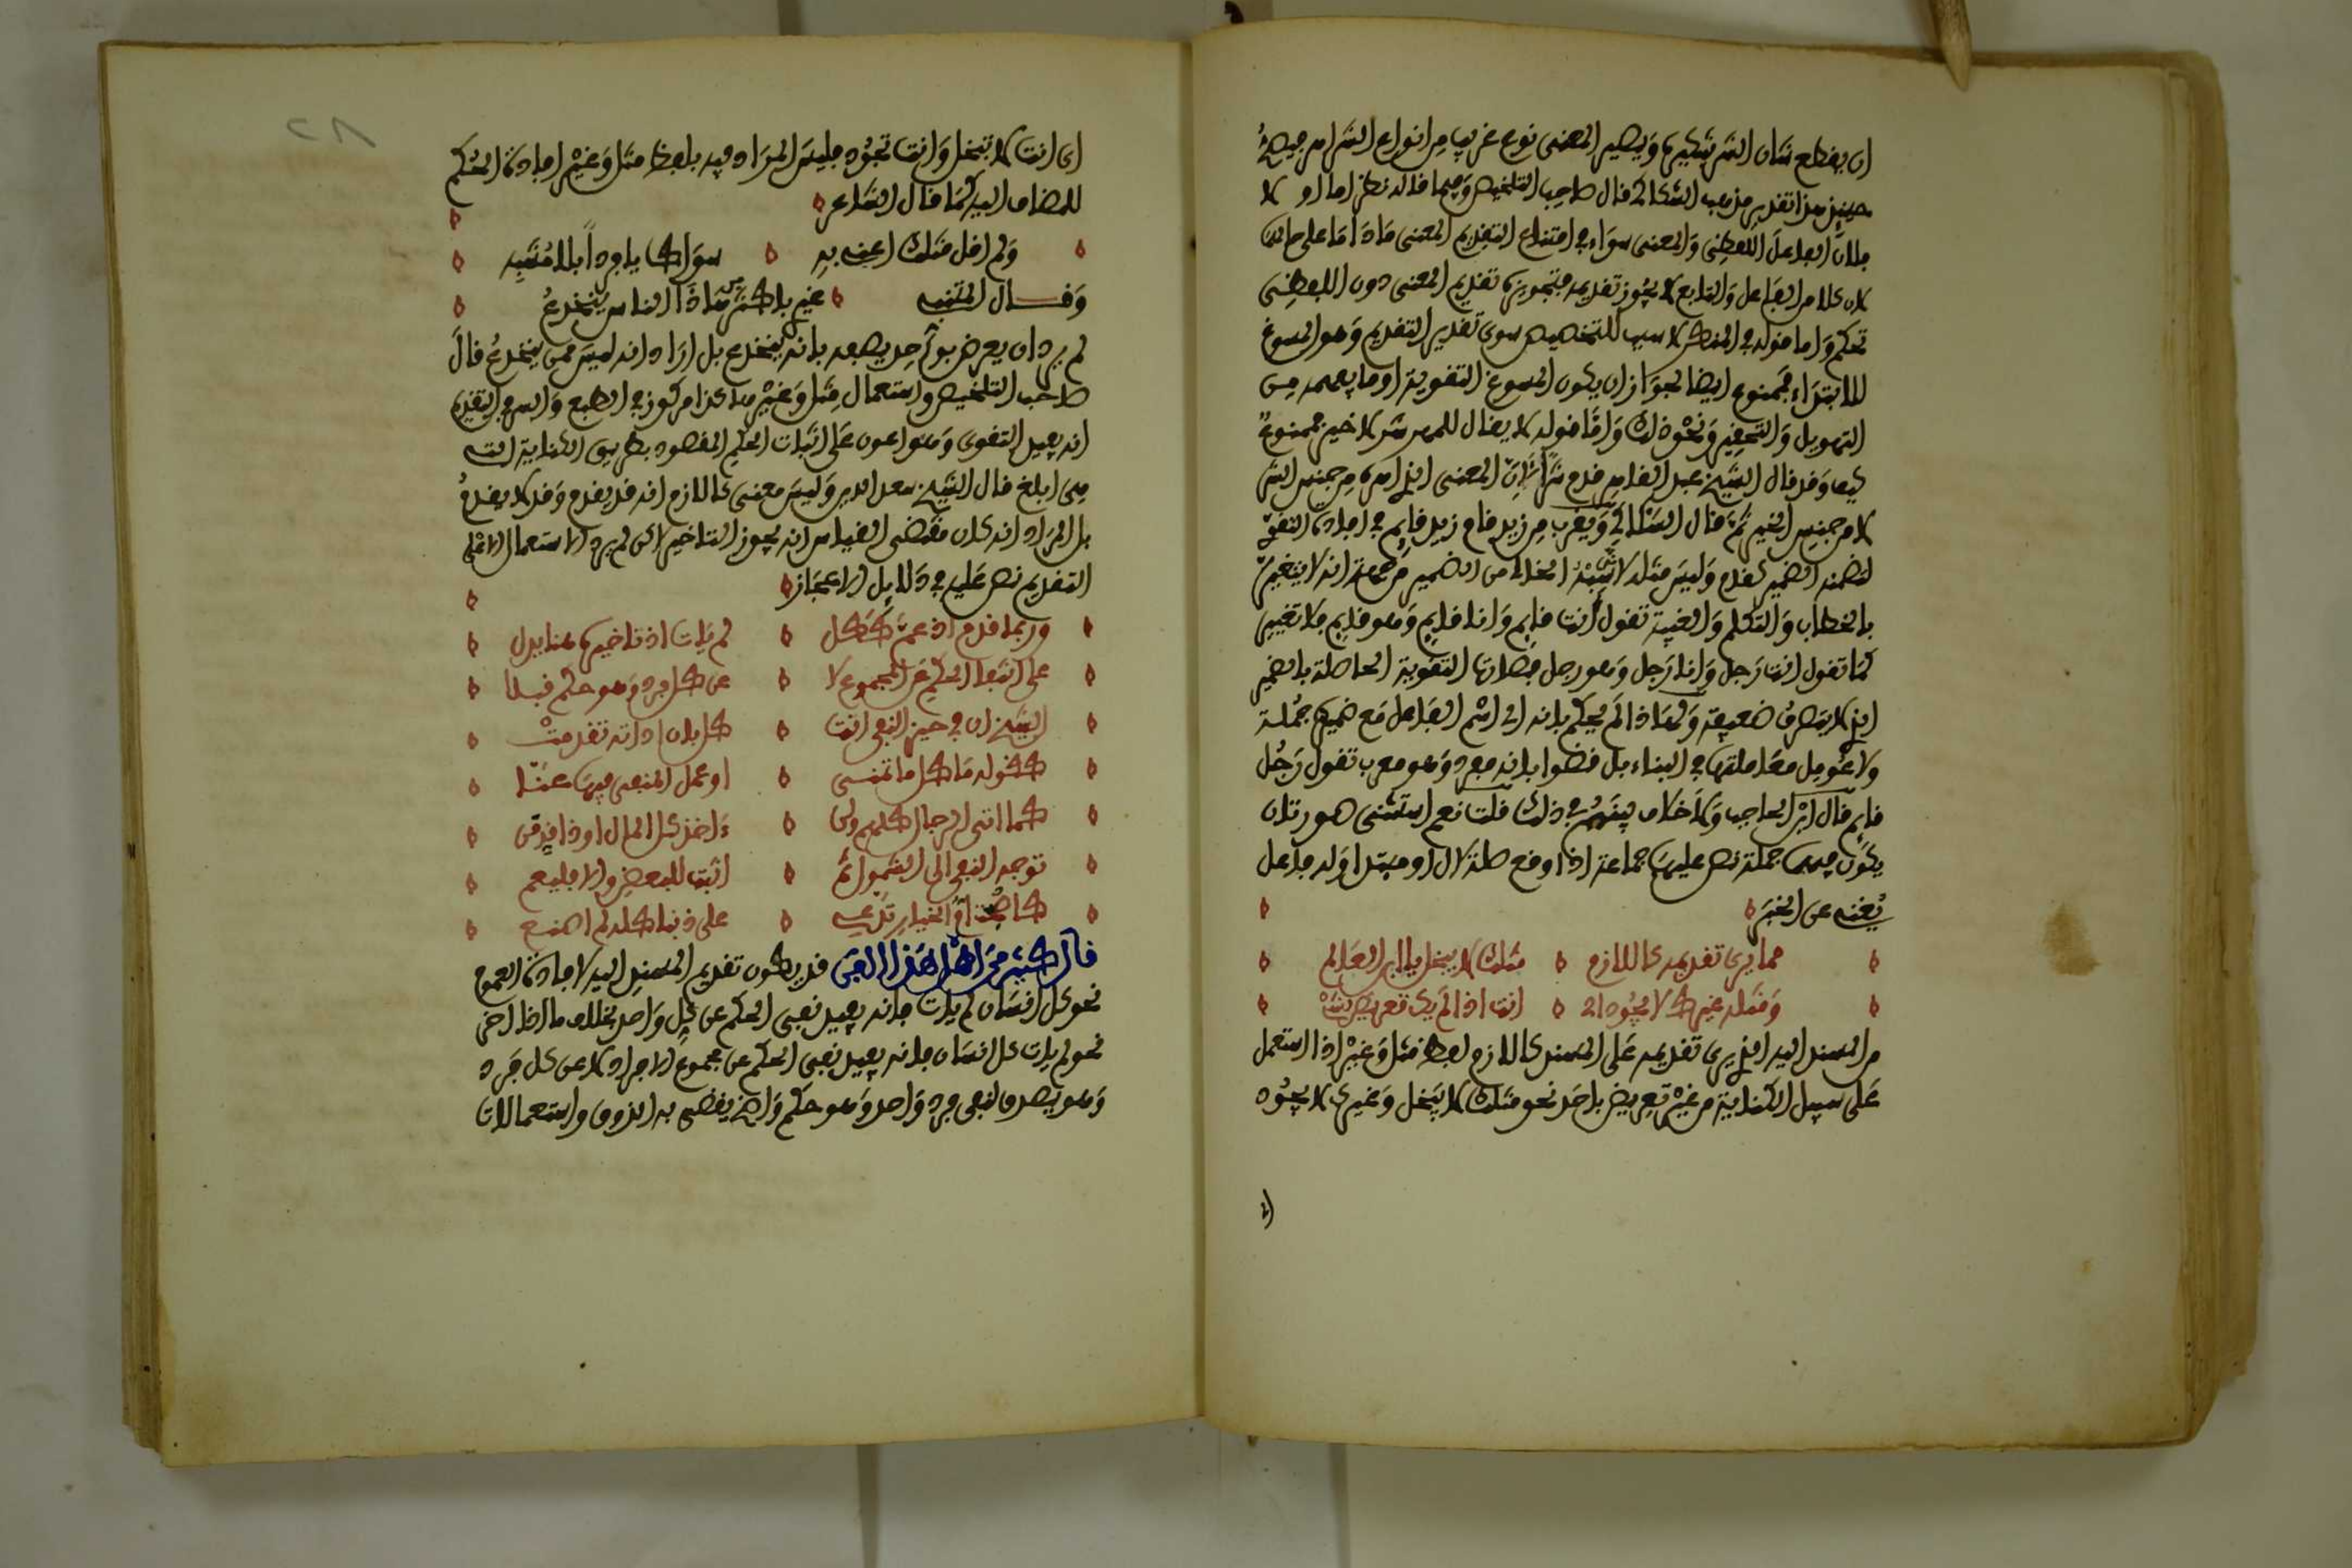 ان يفظع شان الشر بتنكيره ويصير المعنى نوع غريب من انواع الشر اهر فيصح
حينيذ هذا تقدير مذهب السكاكي قال صاحب التلخيص وفيما قاله نظر اما اولا
فلان الفاعل اللفظي والمعنوي سواء في امتناع التقديم المعنى ما داما على حالهما
لان كلا من الفاعل والتابع لا يجوز تقديمه فتجويز تقديم المعنى دون اللفظي
تحكم واما قوله في المنكر لا سبب للتخصيص سوى تقدير التقديم وهو المسوغ
للابتداء فممنوع ايضا لجواز ان يكون المسوغ التقوية او ما يفهمه من
التهويل والتحقير ونحو ذلك واما قوله لا يقال المهر شر لا خير فممنوع
كيف وقد قال الشيخ عبد القاهر قدم شر لان المعنى الذي اهره من جنس الشر
لا من جنس الخير ثم قال السكاكي ويقرب من زيد قام زيد قايم في افادة التقوي
لتضمنه الضمير كقام وليس مثله لانه شبه الخالي من الضمير من جهة انه لا يتغير
بالخطاب والتكلم والغيبة تقول انت قايم وانا قايم وهو قايم فلا تغيير
كما تقول انت رجل وانا رجل وهو رجل فكانت التقوية الحاصلة بالضمير
الذي لا يتصرف ضعيفة ولهاذا لم يحكم بانه اي اسم الفاعل مع ضميره جملة
ولا عومل معاملتها في البناء بل قضوا بانه مفرد وهو معرب تقول رجل
قايم قال ابن الحاجب ولا خلاف بينهم في ذلك قلت نعم استثنى صورتان
يكون فيهما جملة نص عليهما جماعة اذا وقع صلة لال او مبتدا وله فاعل
يغني عن الخبر
مما يرى تقديمه كاللازم مثلك لا يبخل يا ابن العالم
ومثله غيرك لا يجود اي انت اذا لم يك تعريض
من المسند اليه الذي يرى تقديمه على المسند كاللازم لفظ مثل وغير اذا استعمل
على سبيل الكناية من غير تعريض باحد نحو مثلك لا يبخل وغيرك لا يجود
اي
اى انت لا تبخل وانت تجود فليس المراد فيه بلفظ مثل وغير افادة الحكم
للمضاف اليه كما قال الشاعر
ولم اقل مثلك اعني به سواك يا فردا بلا مشبه
وقال المتنبي غيري باكثر هاذا الناس ينخدع
لم يرد ان يعرض بواحد يصفه بانه ينخدع بل اراد انه ليس ممن ينخدع قال
صاحب التلخيص واستعمال مثل وغير هاكذا مركوز في الطبع والسر في التقديم
انه يفيد التقوى وهو اعون على اثبات الحكم المقصود بطريق الكناية التي
هي ابلغ قال الشيخ سعد الدين وليس معنى كاللازم انه قد يقدم وقد لا يقدم
بل المراد انه كان مقتضى القياس انه يجوز التاخير لاكن لم يرد الاستعمال الا على
التقديم نص عليه في دلايل الاعجاز
وربما قدم اذ عم ككل لم يات اذ تاخيره هنا يدل
على انتفا الحكم عن المجموع لا عن كل فرد وهو حكم قبلا
الشيخ ان في حيز النفي اتت كل بان اداته تقدمت
كقوله ما كل ما تمنى او عمل المنفي فيها عنا
كما اتى الرجال كلهم ولن ءاخذ كل المال او ذا قدمن
توجه النفي الى الشمول ثم اثبت للبعض والا فليعم
كاصبحت ام الخيار تدعي على ذنبا كله لم اصنع
قال كثير من اهل هذا الفن قد يكون تقديم المسند اليه لافادة العموم
نحو كل انسان لم يات فانه يفيد نفى الحكم عن كل واحد بخلاف ما اذا اخر
نحو لم يات كل انسان فانه يفيد نفى الحكم عن مجموع الافراد لا عن كل فرد
وهو يصدق بنفي فرد واحد وهو حكم واضح يقضى به الذوق واستعمالات